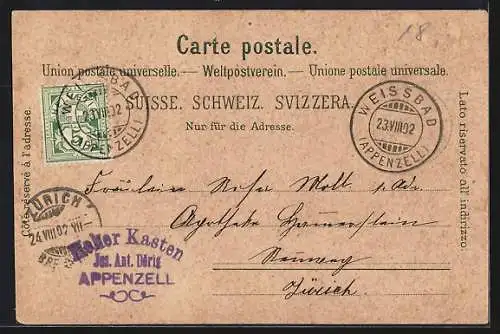 18.
Carte postale.
Union postale universelle. — Weltpostverein. — Unione postale universale.
SUISSE. SCHWEIZ. SVIZZERA.
Nur für die Adresse.
Côté réservé à l'adresse.
Lato riservato all indirizzo.
WEISSBAD
23.VIII.02
(APPENZELL)
WEISSBAD
23.VIII.02
(APPENZELL)
5
ZÜRICH
24.VIII.02
Hoher Kasten
Jos. Ant. Dörig
APPENZELL
Fräulein Rosa Moll p. Adr.
Apotheke Hammerstein
Rennweg
Zürich.